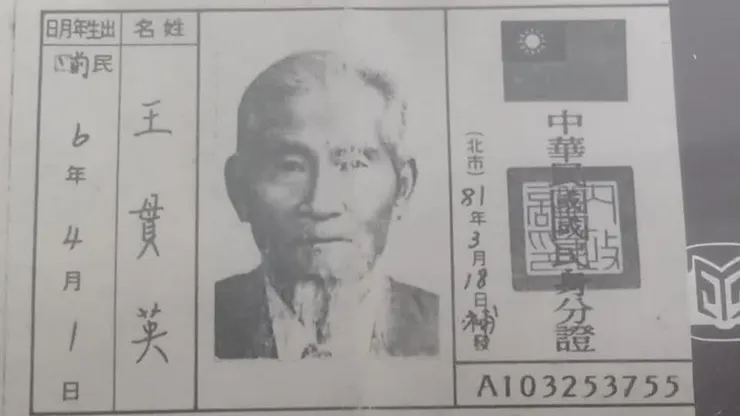 姓名
王貫英
出生年月日
民前
6年4月1日
中華民國國民身分證
(北市)81年3月18日補發
A103253755